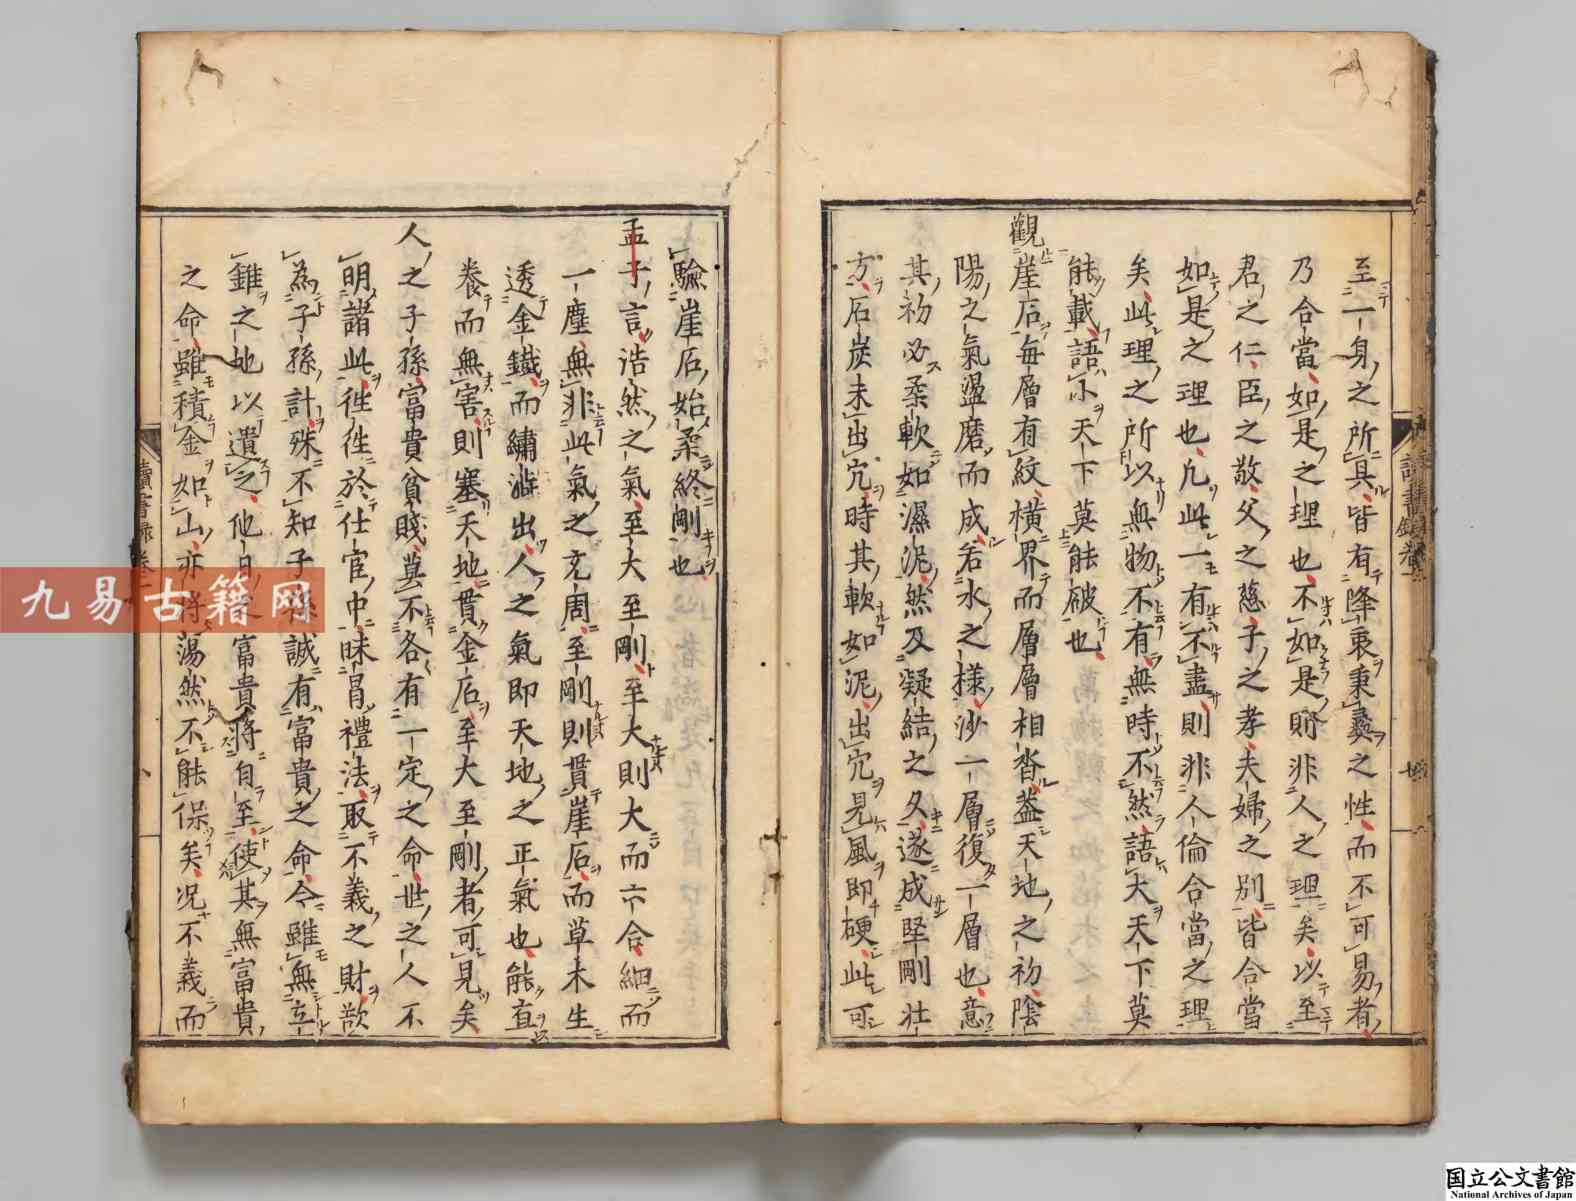 至一身之所具皆有降衷秉彝之性而不可易者
乃合當如是之理也不如是則非人之理矣以至
君之仁臣之敬父之慈子之孝夫婦之別皆合當
如是之理也凡此一有不盡則非人倫合當之理
矣此理之所以無物不有無時不然語大天下莫
能載語小天下莫能破也
觀崖石每層有紋橫界而層層相沓蓋天地之初陰
陽之氣盪磨而成若水之樣沙一層復一層也意
其初必柔軟如濕泥然及凝結之久遂成堅剛壯
方石炭未出穴時其軟如泥出穴見風即硬此可
驗崖石始柔終剛也
孟子言浩然之氣至大至剛至大則大而六合細而
一塵無非此氣之充周至剛則貫崖石而草木生
透金鐵而繡澁出人之氣即天地之正氣也能直
養而無害則塞天地貫金石至大至剛者可見矣
人之子孫富貴貧賤莫不各有一定之命世之人不
明諸此徃徃於仕宦中昧冒禮法取不義之財歆
為子孫計殊不知子孫誠有富貴之命今雖無立
錐之地以遺之他日之富貴將自至使其無富貴
之命雖積金如山亦將蕩然不能保矣況不義而
讀書錄卷一
九易古籍网
国立公文書館
National Archives of Japan